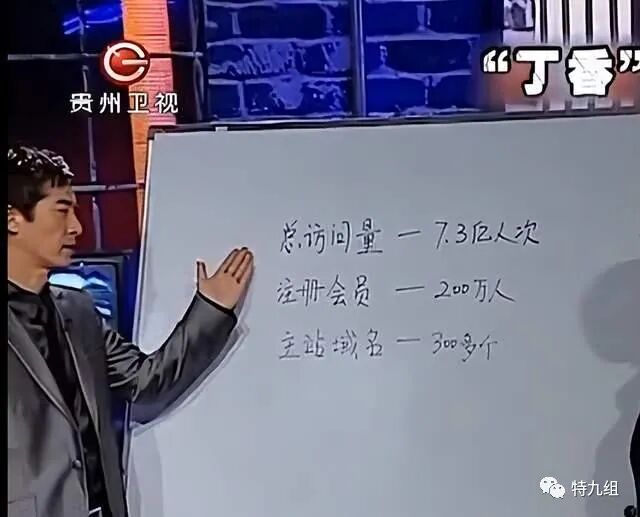 贵州卫视
“丁香”
总访问量 — 7.3亿人次
注册会员 — 200万人
主站域名 — 300多个
特九组